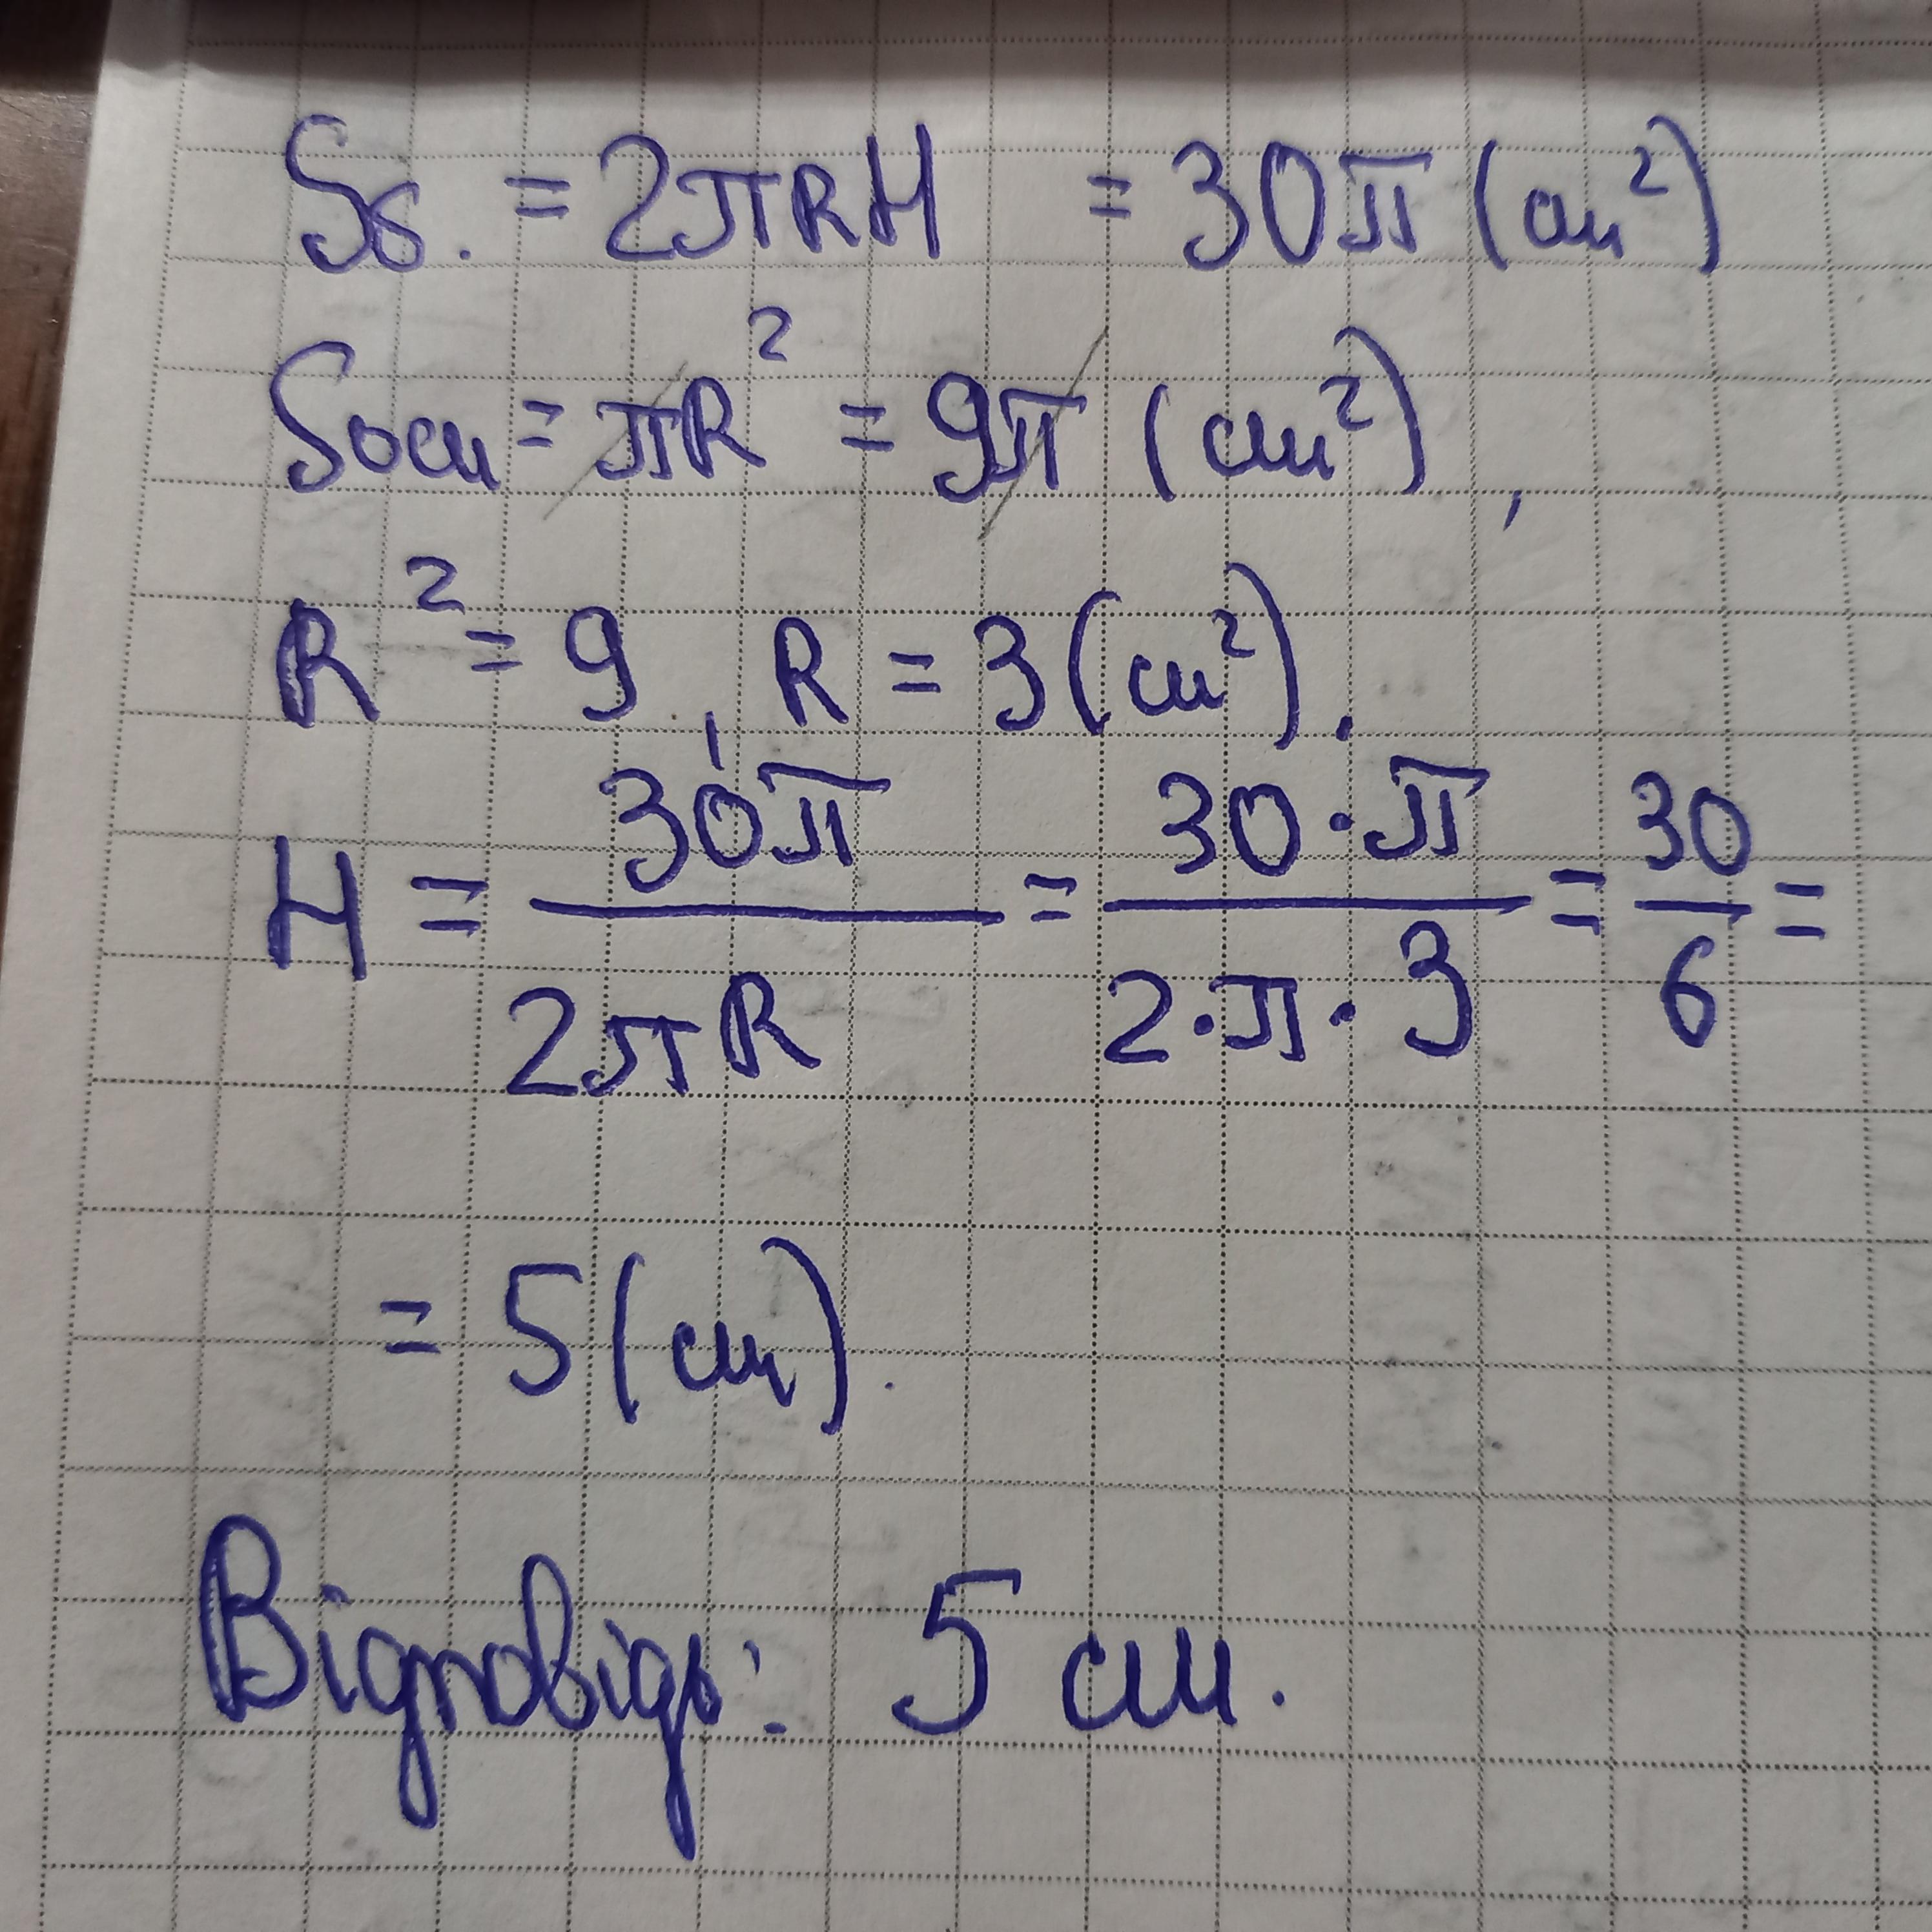 Sб. = 2πRH = 30π (см²)
Sосн = πR² = 9π (см²),
R² = 9, R = 3 (см²).
H = 30π / 2πR = 30·π / 2·π·3 = 30 / 6 =
= 5 (см).
Відповідь: 5 см.